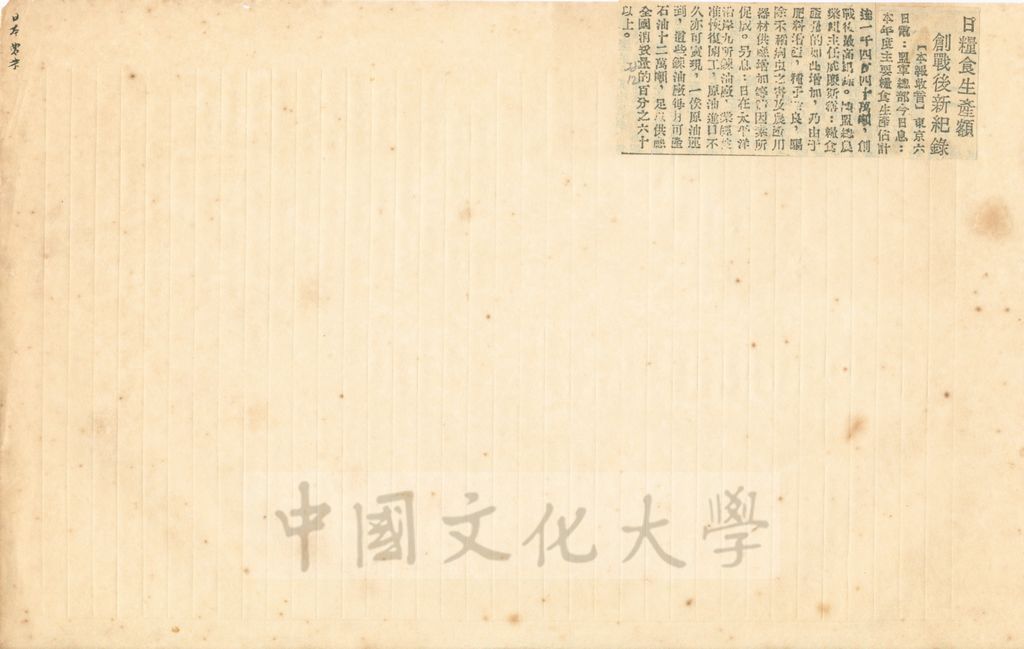 日糧食生產額
創戰後新紀錄
【本報收音】東京六
日電：盟軍總部今日息：
本年度主要糧食生產估計
達一千四百四十萬噸，創
戰後最高紀錄。據盟總農
業組主任威廉斯稱：糧食
產量的如此增加，乃由于
肥料沿途，種子改良，驅
除禾稻病虫之害及良好用
器材供應增加等等因素所
促成。另息：日在太平洋
沿岸九所鍊油廠，業經
准恢復開工，原油進口不
久亦可實現，一俟原油運
到，這些鍊油廠每月可產
石油十二萬噸，足以供應
全國消費量的百分之六十
以上。
日本
中國文化大學